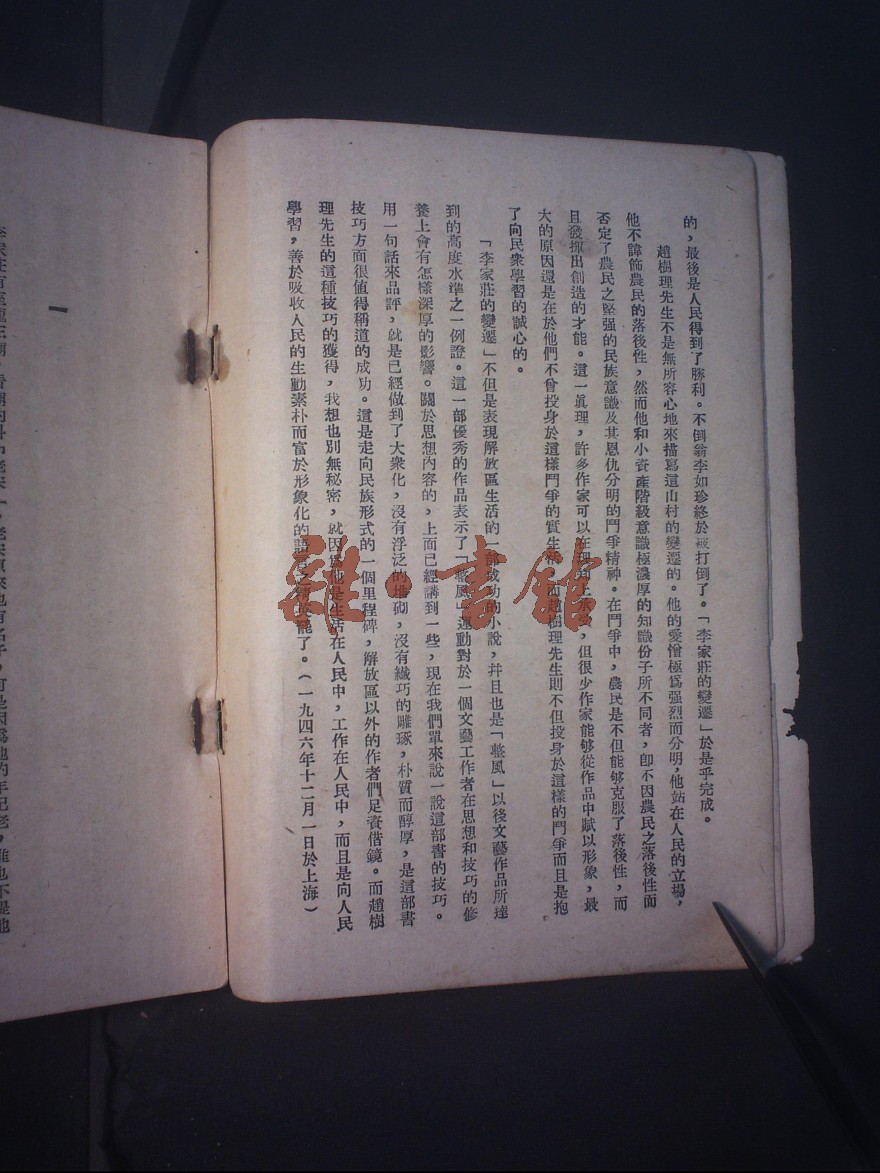 的，最後是人民得到了勝利。不倒翁李如珍終於被打倒了。「李家莊的變遷」於是乎完成。
趙樹理先生不是無所容心地來描寫這山村的變遷的。他的愛憎極爲强烈而分明，他站在人民的立場，
他不諱飾農民的落後性，然而他和小資產階級意識極濃厚的知識份子所不同者，卽不因農民之落後性而
否定了農民之堅强的民族意識及其恩仇分明的鬥爭精神。在鬥爭中，農民是不但能够克服了落後性，而
且發揮出創造的才能。這一眞理，許多作家可以在理論上承認，但很少作家能够從作品中賦以形象，最
大的原因還是在於他們不曾投身於這樣鬥爭的實生活，而趙樹理先生則不但投身於這樣的鬥爭而且是抱
了向民衆學習的誠心的。
「李家莊的變遷」不但是表現解放區生活的一部成功的小說，幷且也是「整風」以後文藝作品所達
到的高度水準之一例證。這一部優秀的作品表示了「整風」運動對於一個文藝工作者在思想和技巧的修
養上會有怎樣深厚的影響。關於思想內容的，上面已經講到一些，現在我們單來說一說這部書的技巧。
用一句話來品評，就是已經做到了大衆化，沒有浮泛的堆砌，沒有纖巧的雕琢，朴質而醇厚，是這部書
技巧方面很值得稱道的成功。這是走向民族形式的一個里程碑，解放區以外的作者們足資借鏡。而趙樹
理先生的這種技巧的獲得，我想也別無秘密，就因爲他是生活在人民中，工作在人民中，而且是向人民
學習，善於吸收人民的生動素朴而富於形象化的語言之精英罷了。（一九四六年十二月一日於上海）
一
雜·書館